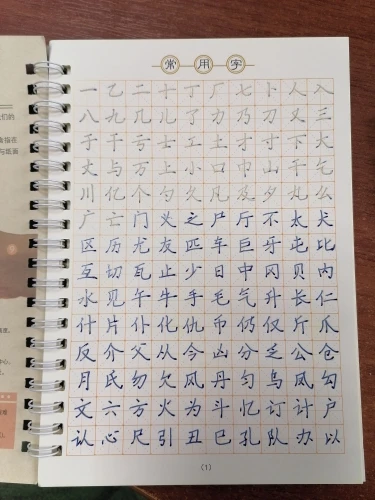 常用字
一乙二十丁厂七卜人入
八九几儿了力乃刀又三
于干亏士工土才寸下大
丈与万上小口巾山千乞
川亿个勺久凡及夕丸么
广亡门义之尸厅不太犬
区历尤友匹车巨牙屯比
互切瓦止少日中冈贝内
水见午牛手毛气升长仁
什片仆化仇币仍仅斤爪
反介父从今凶分乏公仓
月氏勿欠风丹匀乌凤勾
文六方火为斗忆订计户
认心尺引丑巴孔队办以
(1)